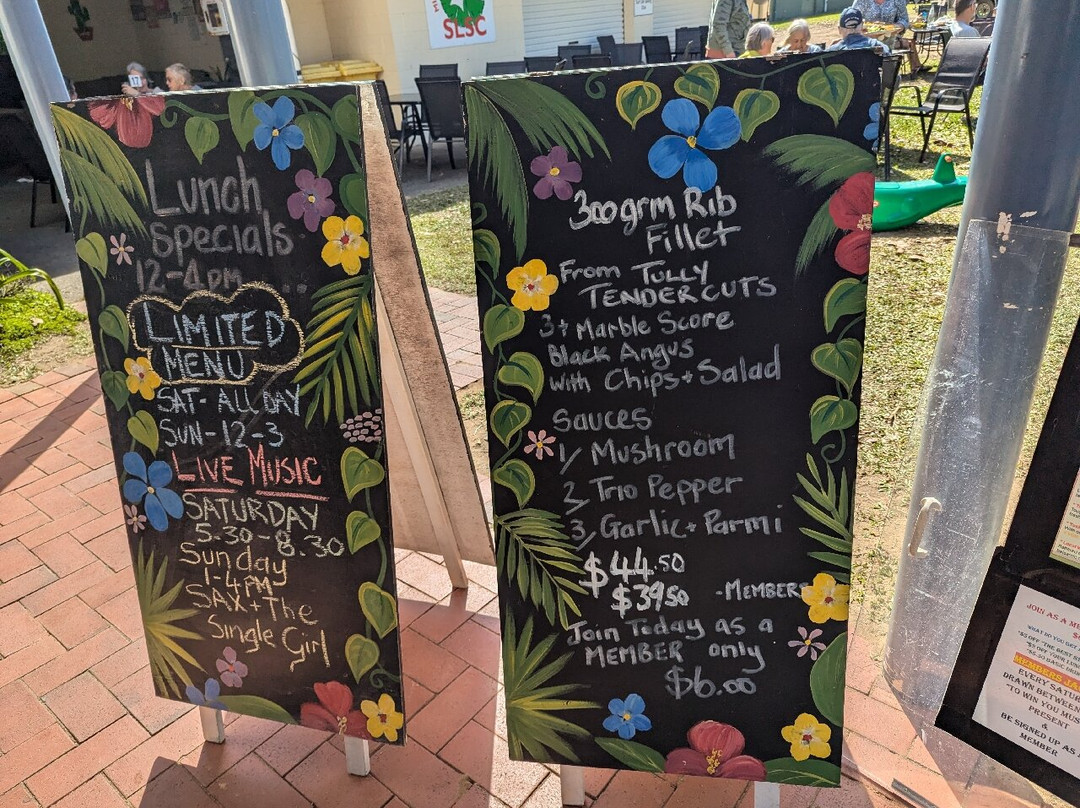 SLSC
Lunch
Specials
12-4pm...
LIMITED
MENU
SAT- ALL DAY
SUN-12-3
LIVE MUSIC
SATURDAY
5.30-8.30
Sunday
1-4PM
SAX+THE
Single Girl
300grm Rib
Fillet
From TULLY
TENDERCUTS
3+ Marble Score
Black Angus
with Chips+Salad
Sauces
1/ Mushroom
2/ Trio Pepper
3/ Garlic+Parmi
$44.50
$39.50 -MEMBERS
Join Today as a
MEMBER only
$6.00
JOIN AS A
WHAT DO YOU GET
MEMBERS
EVERY SATUR
DRAWN BETWEEN
"TO WIN YOU MUS
PRESENT
&
BE SIGNED UP AS
MEMBER